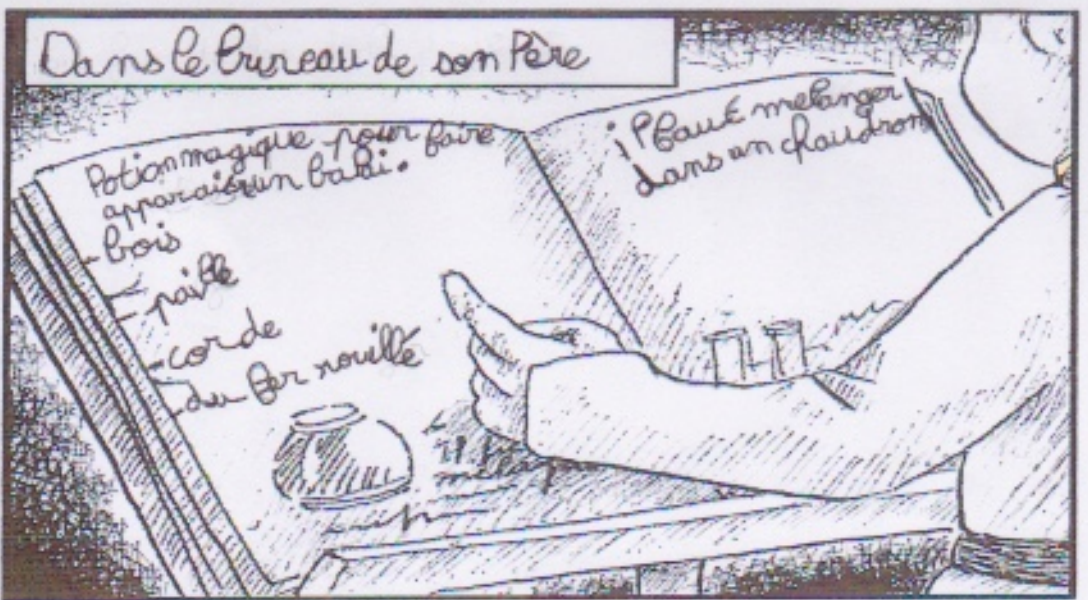 Dans le bureau de son Père
Potion magique pour faire
apparaitre un balai.
- bois
- paille
- corde
- du fer rouillé
il faut mélanger
dans un chaudron